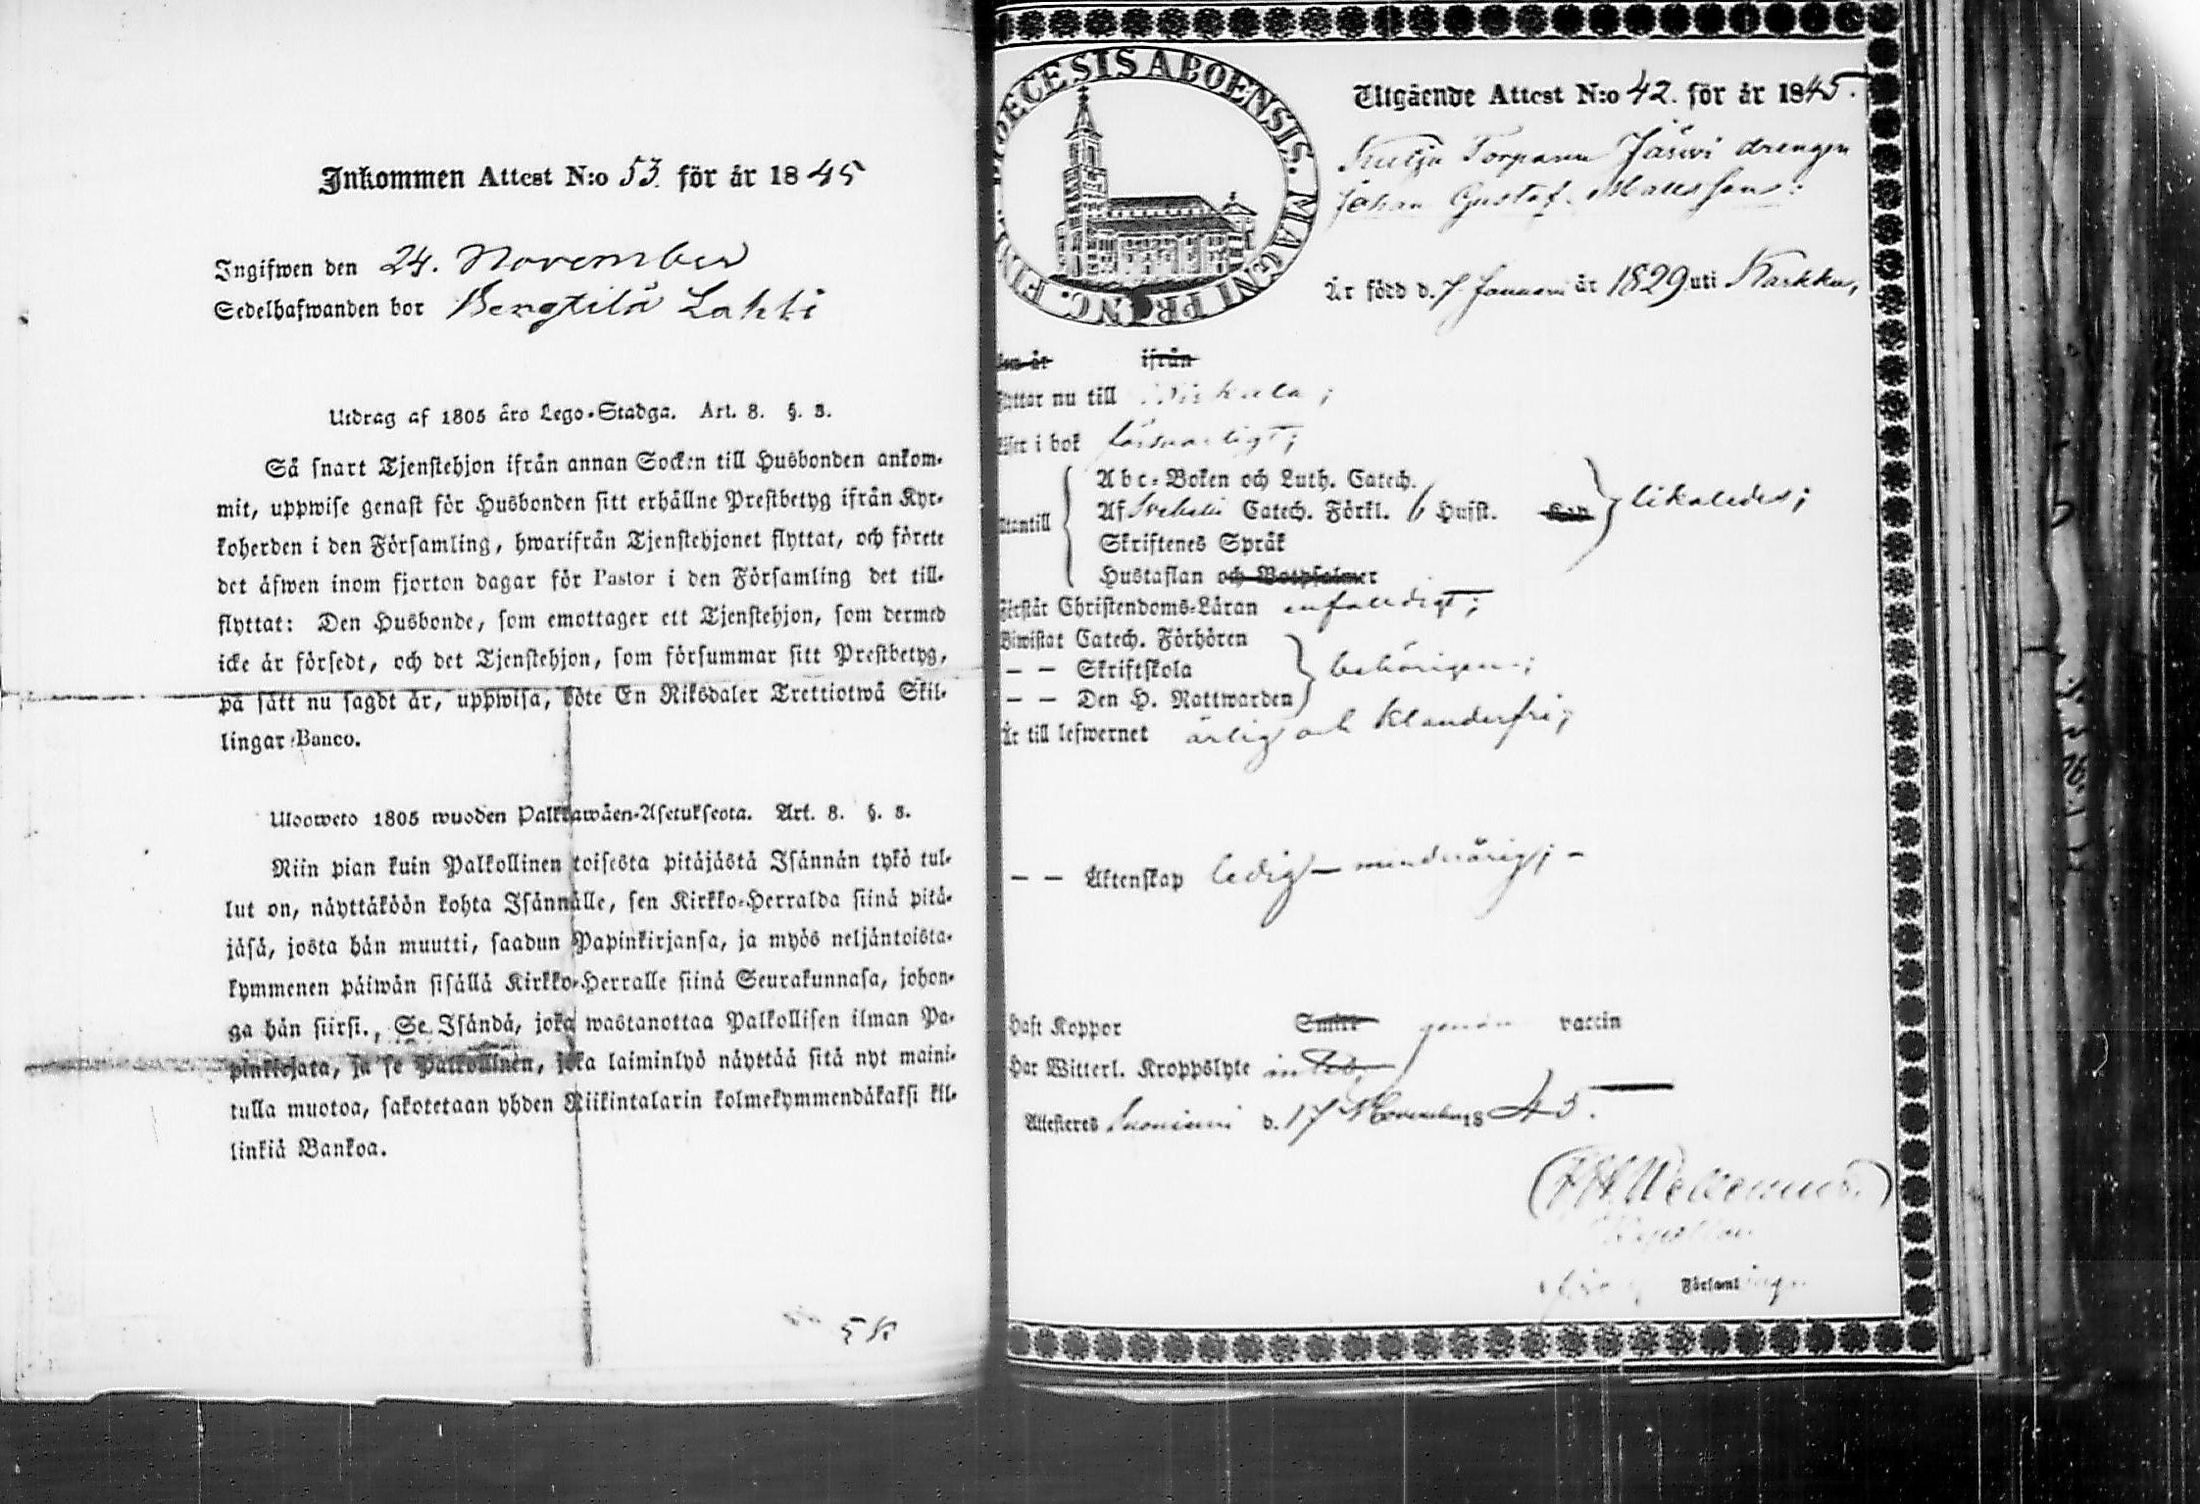 Inkommen Attest N:o 53. för år 1845
Ingifwen den 24. November
Sedelhafwanden bor Bengtilä Lahti
Utdrag af 1805 års Lego-Stadga. Art. 8. §. 3.
Så snart Tjenstehjon ifrån annan Socken till Husbonden ankom-
mit, uppwise genast för Husbonden sitt erhållne Prestbetyg ifrån Kyr-
koherden i den Församling, hwarifrån Tjenstehjonet flyttat, och förete
det äfwen inom fjorton dagar för Pastor i den Församling det till-
flyttat: Den Husbonde, som emottager ett Tjenstehjon, som dermed
icke är försedt, och det Tjenstehjon, som försummar sitt Prestbetyg,
på sätt nu sagdt är, uppwisa, böte En Riksdaler Trettiotwå Skil-
lingar Banco.
Ulosweto 1805 wuoden Palkkawäen-Asetuksesta. Art. 8. §. 3.
Niin pian kuin Palkollinen toisesta pitäjästä Isännän tykö tul-
lut on, näyttäköön kohta Isännälle, sen Kirkko-Herralda siinä pitä-
jäsä, josta hän muutti, saadun Papinkirjansa, ja myös neljäntoista-
kymmenen päiwän sisällä Kirkko-Herralle siinä Seurakunnasa, johon-
ga hän siirsi., Se Isändä, joka wastanottaa Palkollisen ilman Pa-
pinkirjata, ja se Palkollinen, joka laiminlyö näyttää sitä nyt maini-
tulla muotoa, sakotetaan yhden Riikintalarin kolmekymmendäkaksi kil-
linkiä Bankoa.
DIOECESIS ABOENSIS. MAGNI PRINC. FINL.
Utgående Attest N:o 42. för år 1845.
Torparn Jäswi drengen
Johan Gustaf Mattsson
Är född d. 7 Januari år 1829 uti Karkku,
den år ifrån
flyttar nu till
läser i bok försvarligt;
Abc-Boken och Luth. Catech.
utantill Af Svebelii Catech. Förkl. 6 Husst. likaledes;
Skriftenes Språk
Hustaflan och Botpsalmer
Förstår Christendoms-Läran enfaldigt;
Biwistat Catech. Förhören
— — Skriftskola behörigen;
— — Den H. Nattwarden
Är till lefwernet ärlig och klanderfri;
— — Äktenskap ledig — minderårig; —
Haft Koppor genom vaccin
Har Witterl. Kroppslyte
Attesteras Suoniemi d. 17 November 1845.
Församlingen